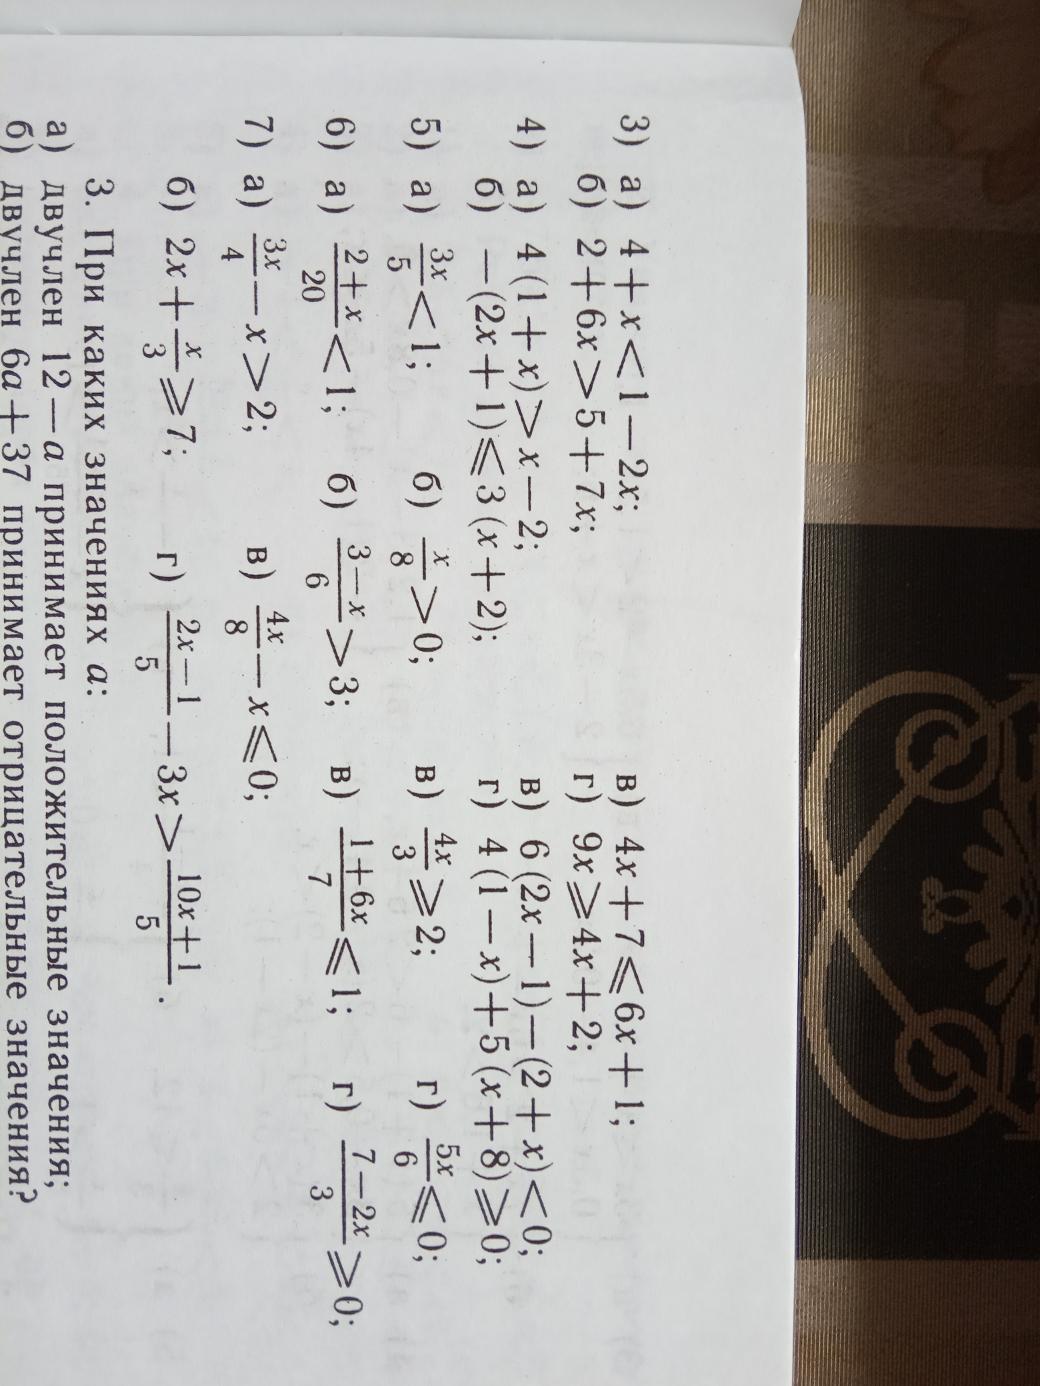 3) а) 4+x<1−2x; в) 4x+7⩽6x+1;
б) 2+6x>5+7x; г) 9x⩾4x+2;
4) а) 4(1+x)>x−2; в) 6(2x−1)−(2+x)<0;
б) −(2x+1)⩽3(x+2); г) 4(1−x)+5(x+8)⩾0;
5) а) 3x/5<1; б) x/8>0; в) 4x/3⩾2; г) 5x/6⩽0;
6) а) (2+x)/20<1; б) (3−x)/6>3; в) (1+6x)/7⩽1; г) (7−2x)/3⩾0;
7) а) 3x/4−x>2; в) 4x/8−x⩽0;
б) 2x+x/3⩾7; г) (2x−1)/5−3x>(10x+1)/5.
3. При каких значениях a:
а) двучлен 12−a принимает положительные значения;
б) двучлен 6a+37 принимает отрицательные значения?